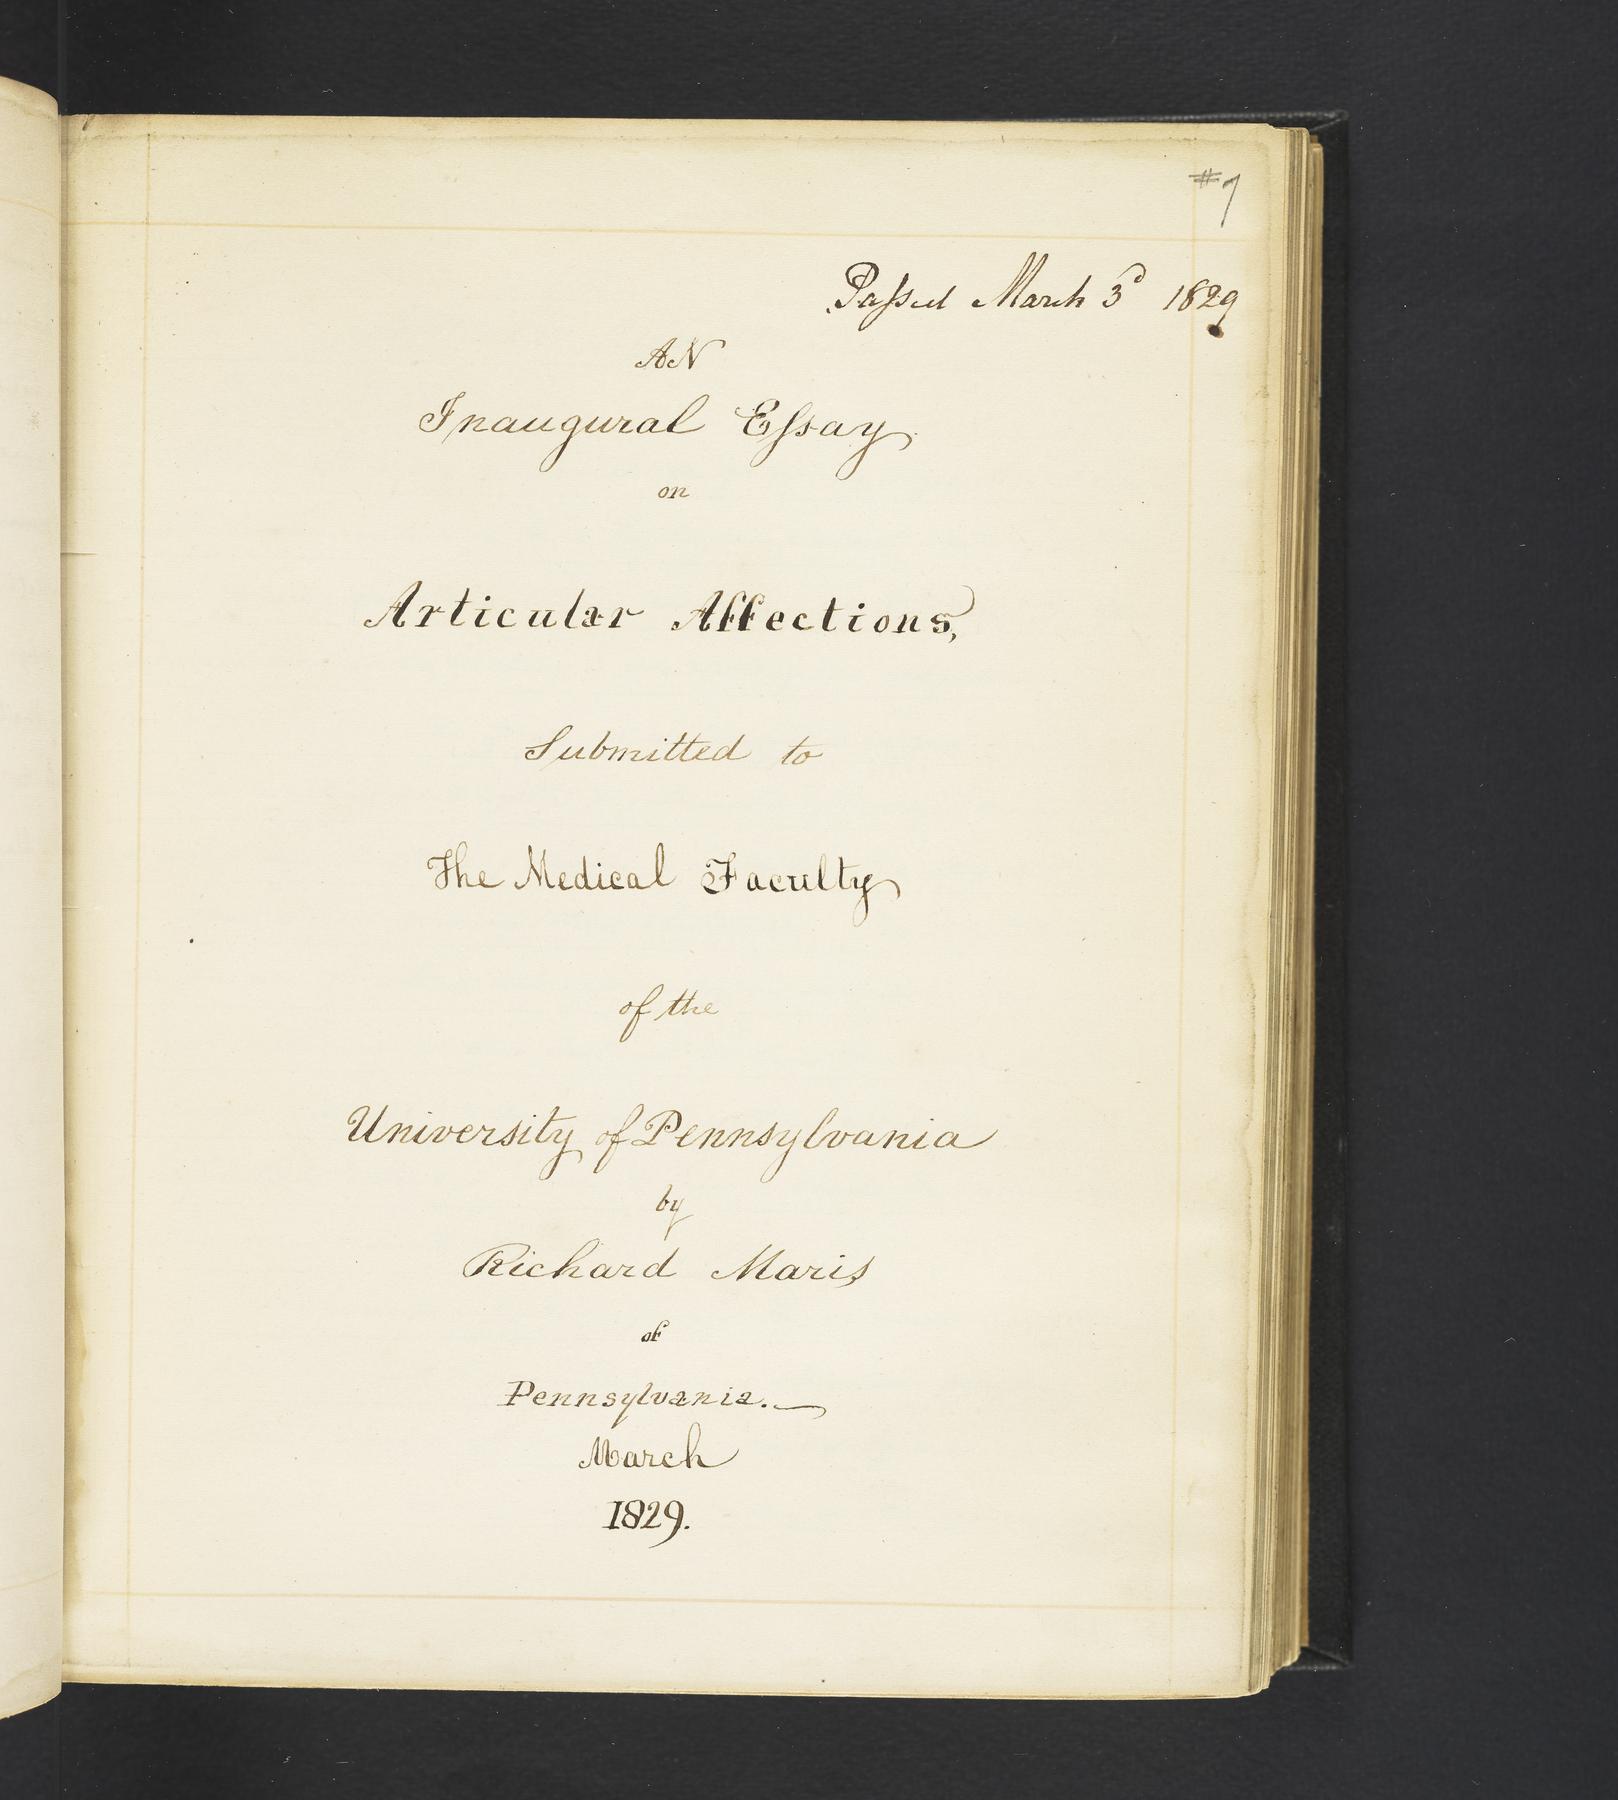 #7
Passed March 3d 1829
AN
Inaugural Essay
on
Articular Affections,
Submitted to
The Medical Faculty
of the
University of Pennsylvania
by
Richard Maris
of
Pennsylvania.
March
1829.